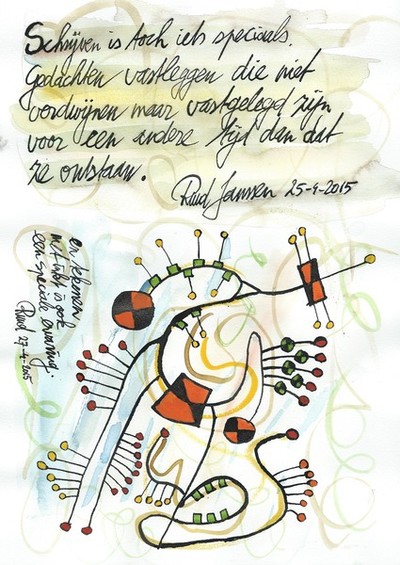 Schrijven is toch iets speciaals.
Gedachten vastleggen die niet
verdwijnen maar vastgelegd zijn
voor een andere tijd dan dat
ze ontstaan.
Ruud Janssen 25-4-2015
en tekenen
met inkt is ook
een speciale ervaring.
Ruud 27-4-2015